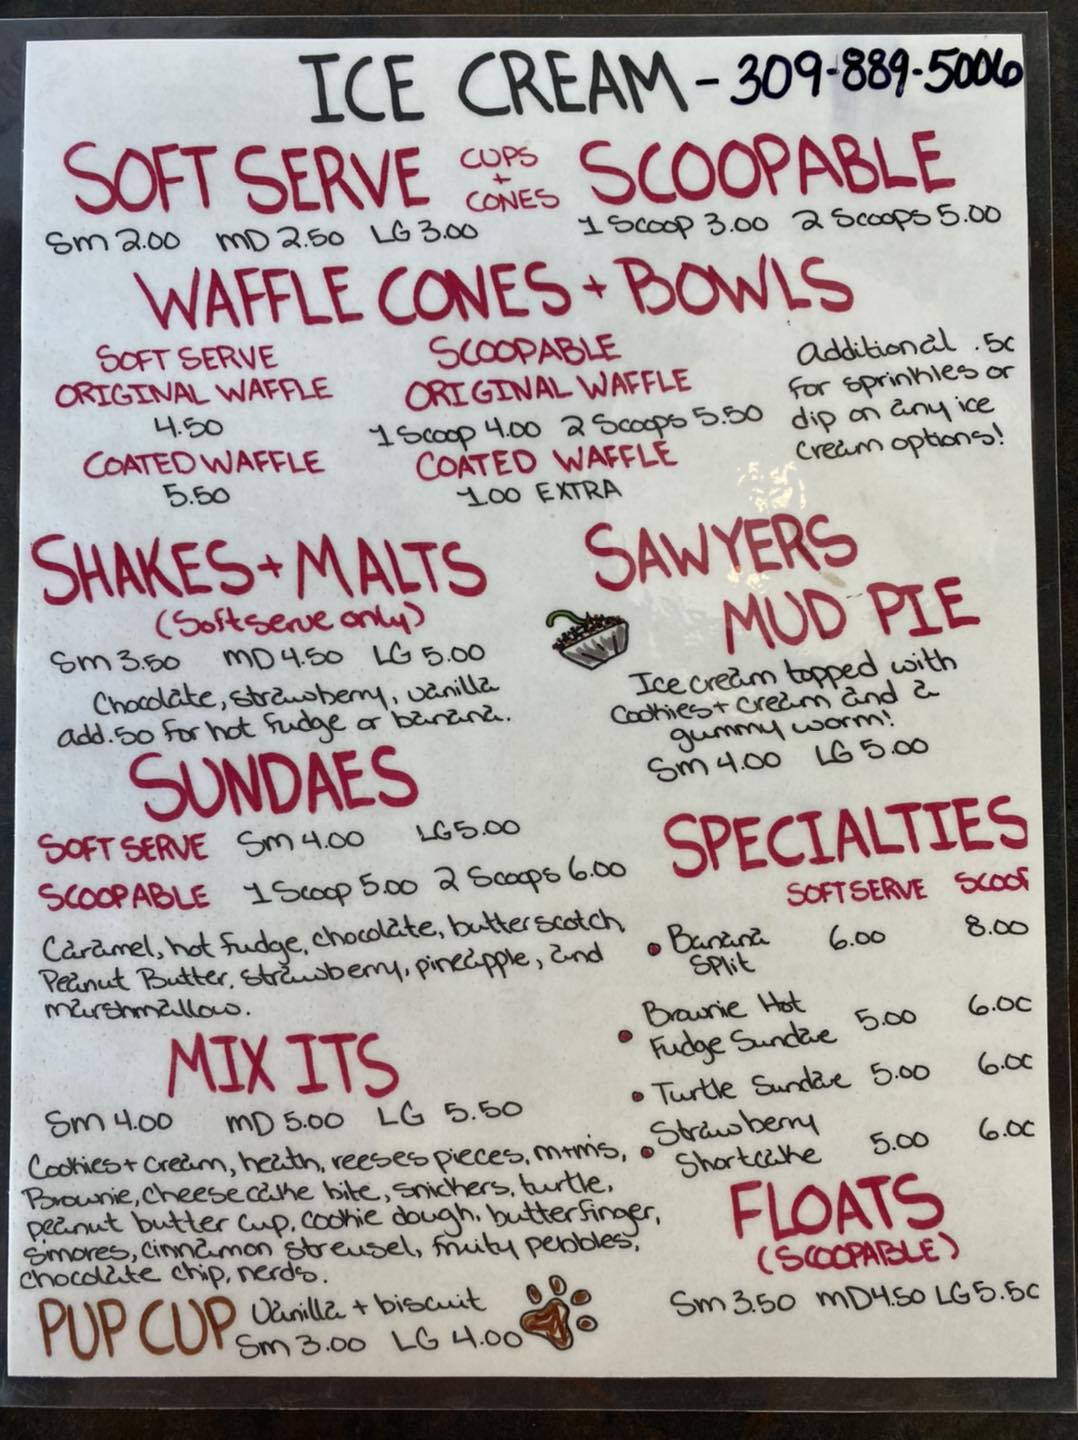 ICE CREAM - 309-889-5006
SOFT SERVE CUPS + CONES SCOOPABLE
Sm 2.00 MD 2.50 LG 3.00 1 Scoop 3.00 2 Scoops 5.00
WAFFLE CONES + BOWLS
SOFT SERVE
ORIGINAL WAFFLE
4.50
COATED WAFFLE
5.50
SCOOPABLE
ORIGINAL WAFFLE
1 Scoop 4.00 2 Scoops 5.50
COATED WAFFLE
1.00 EXTRA
Additional .50
for sprinkles or
dip on any ice
cream options!
SHAKES + MALTS
(Softserve only)
Sm 3.50 MD 4.50 LG 5.00
Chocolate, strawberry, vanilla
add .50 for hot fudge or banana.
SAWYERS
MUD PIE
Ice cream topped with
cookies + cream and a
gummy worm!
Sm 4.00 LG 5.00
SUNDAES
SOFT SERVE Sm 4.00 LG 5.00
SCOOPABLE 1 Scoop 5.00 2 Scoops 6.00
Caramel, hot fudge, chocolate, butterscotch,
Peanut Butter, strawberry, pineapple, and
marshmallow.
SPECIALTIES
SOFTSERVE SCOOP
• Banana Split 6.00 8.00
• Brownie Hot
Fudge Sundae 5.00 6.00
• Turtle Sundae 5.00 6.00
• Strawberry
Shortcake 5.00 6.00
MIX ITS
Sm 4.00 MD 5.00 LG 5.50
Cookies + cream, heath, reeses pieces, m+m's,
Brownie, cheesecake bite, snickers, turtle,
peanut butter cup, cookie dough, butterfinger,
s'mores, cinnamon streusel, fruity pebbles,
chocolate chip, nerds.
FLOATS
(SCOOPABLE)
Sm 3.50 MD 4.50 LG 5.50
PUP CUP Vanilla + biscuit
Sm 3.00 LG 4.00